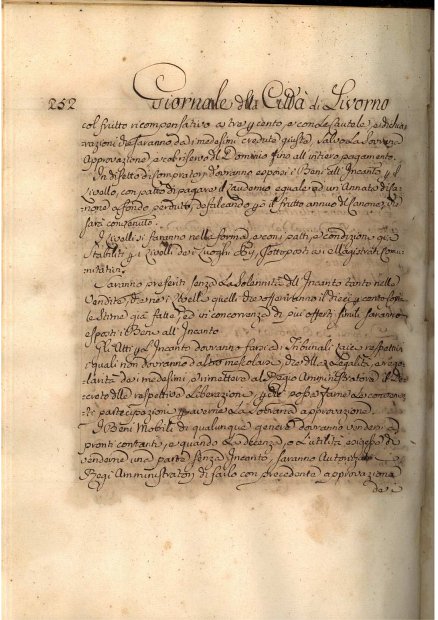 252 Giornale della Città di Livorno
col frutto ricompensativo a tre per cento, e con le cautele, e dichia-
razioni che saranno da i medesimi credute giuste, salvo la Sovrana
Approvazione, e col riservo del Dominio fino all'intiero pagamento.
In difetto di Compratori dovranno esporsi i Beni all'Incanto per il
Livello, con patto di pagare il Laudemio equale ad un Annata di Ca-
none a fondo perduto, defalcando per il frutto annuo del Canone che
sarà convenuto.
I Livelli si faranno nella forma, e con i patti, e condizioni già
stabiliti per i Livelli dei Luoghi Pij, sottoposti ai Magistrati Comu-
nitativi.
Saranno preferiti senza la solennità dell'Incanto tanto nelle
Vendite, che ne i Livelli quelli che offeriranno il dieci per cento sopra
le Stime già fatte, ed in concorrenza di più offerte simili saranno
esposti i Beni all'Incanto
Gli Atti per l'Incanto dovranno farsi ai Tribunali
i quali non dovranno d'altro mescolarsi, che della Legalità, e rego-
larità dei medesimi, e rimettere al Regio Amministratore il De-
creto della respettiva Liberazione, possa farne
partecipazione per averne la Sovrana approvazione.
I Beni Mobili di qualunque genere dovranno vendersi a
pronti contanti, e quando la decenza, o l'utilità esigesse di
venderne una parte senza Incanto, saranno Autorizzati
Regi Amministratori di farlo con precedente approvazione